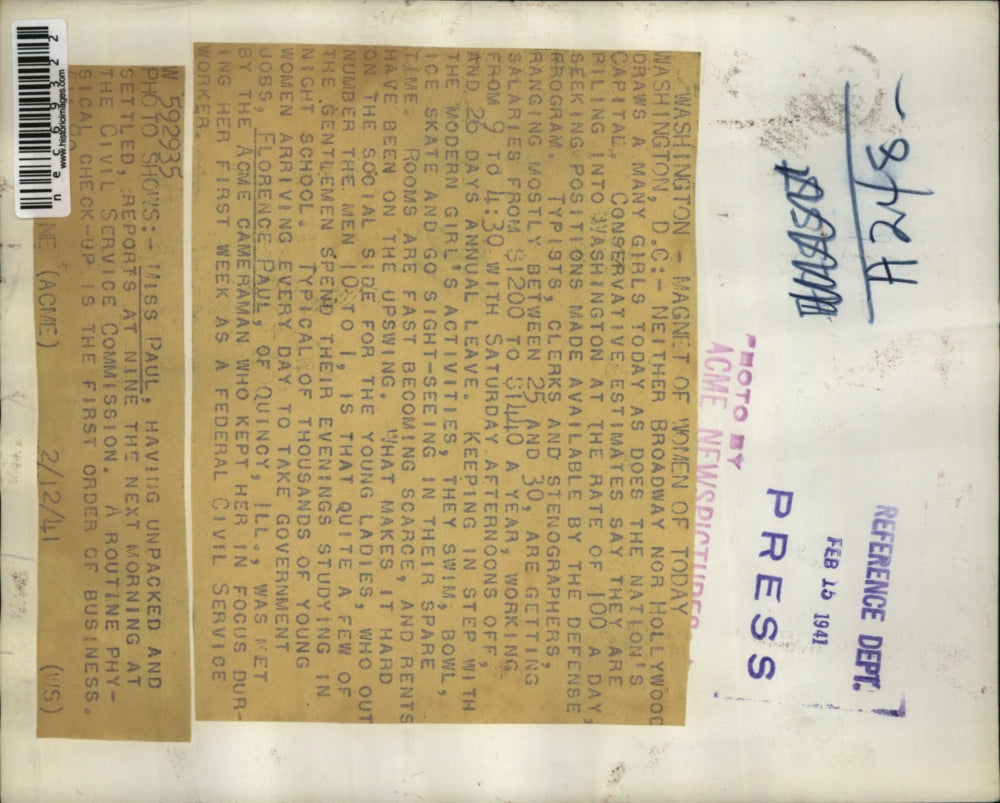 A248-
REFERENCE DEPT.
FEB 16 1941
PRESS
PHOTO BY
ACME NEWSPICTURES
WASHINGTON - MAGNET OF WOMEN OF TODAY
WASHINGTON, D.C:- NEITHER BROADWAY NOR HOLLYWOOD
DRAWS A MANY GIRLS TODAY AS DOES THE NATION'S
CAPITAL. CONSERVATIVE ESTIMATES SAY THEY ARE
PILING INTO WASHINGTON AT THE RATE OF 100 A DAY,
SEEKING POSITIONS MADE AVAILABLE BY THE DEFENSE
PROGRAM. TYPISTS, CLERKS AND STENOGRAPHERS,
RANGING MOSTLY BETWEEN 25 AND 30, ARE GETTING
SALARIES FROM $1200 TO $1440 A YEAR, WORKING
FROM 9 TO 4:30 WITH SATURDAY AFTERNOONS OFF,
AND 26 DAYS ANNUAL LEAVE. KEEPING IN STEP WITH
THE MODERN GIRL'S ACTIVITIES, THEY SWIM, BOWL,
ICE SKATE AND GO SIGHT-SEEING IN THEIR SPARE
TIME. ROOMS ARE FAST BECOMING SCARCE, AND RENTS
HAVE BEEN ON THE UPSWING. WHAT MAKES IT HARD
ON THE SOCIAL SIDE FOR THE YOUNG LADIES, WHO OUT
NUMBER THE MEN 10 TO 1, IS THAT QUITE A FEW OF
THE GENTLEMEN SPEND THEIR EVENINGS STUDYING IN
NIGHT SCHOOL. TYPICAL OF THOUSANDS OF YOUNG
WOMEN ARRIVING EVERY DAY TO TAKE GOVERNMENT
JOBS, FLORENCE PAUL, OF QUINCY, ILL., WAS MET
BY THE ACME CAMERAMAN WHO KEPT HER IN FOCUS DUR-
ING HER FIRST WEEK AS A FEDERAL CIVIL SERVICE
WORKER.
W 592935
PHOTO SHOWS:- MISS PAUL, HAVING UNPACKED AND
SETTLED, REPORTS AT NINE THE NEXT MORNING AT
THE CIVIL SERVICE COMMISSION. A ROUTINE PHY-
SICAL CHECK-UP IS THE FIRST ORDER OF BUSINESS.
NE (ACME) 2/12/41 (WS)
www.historicimages.com
nec69322